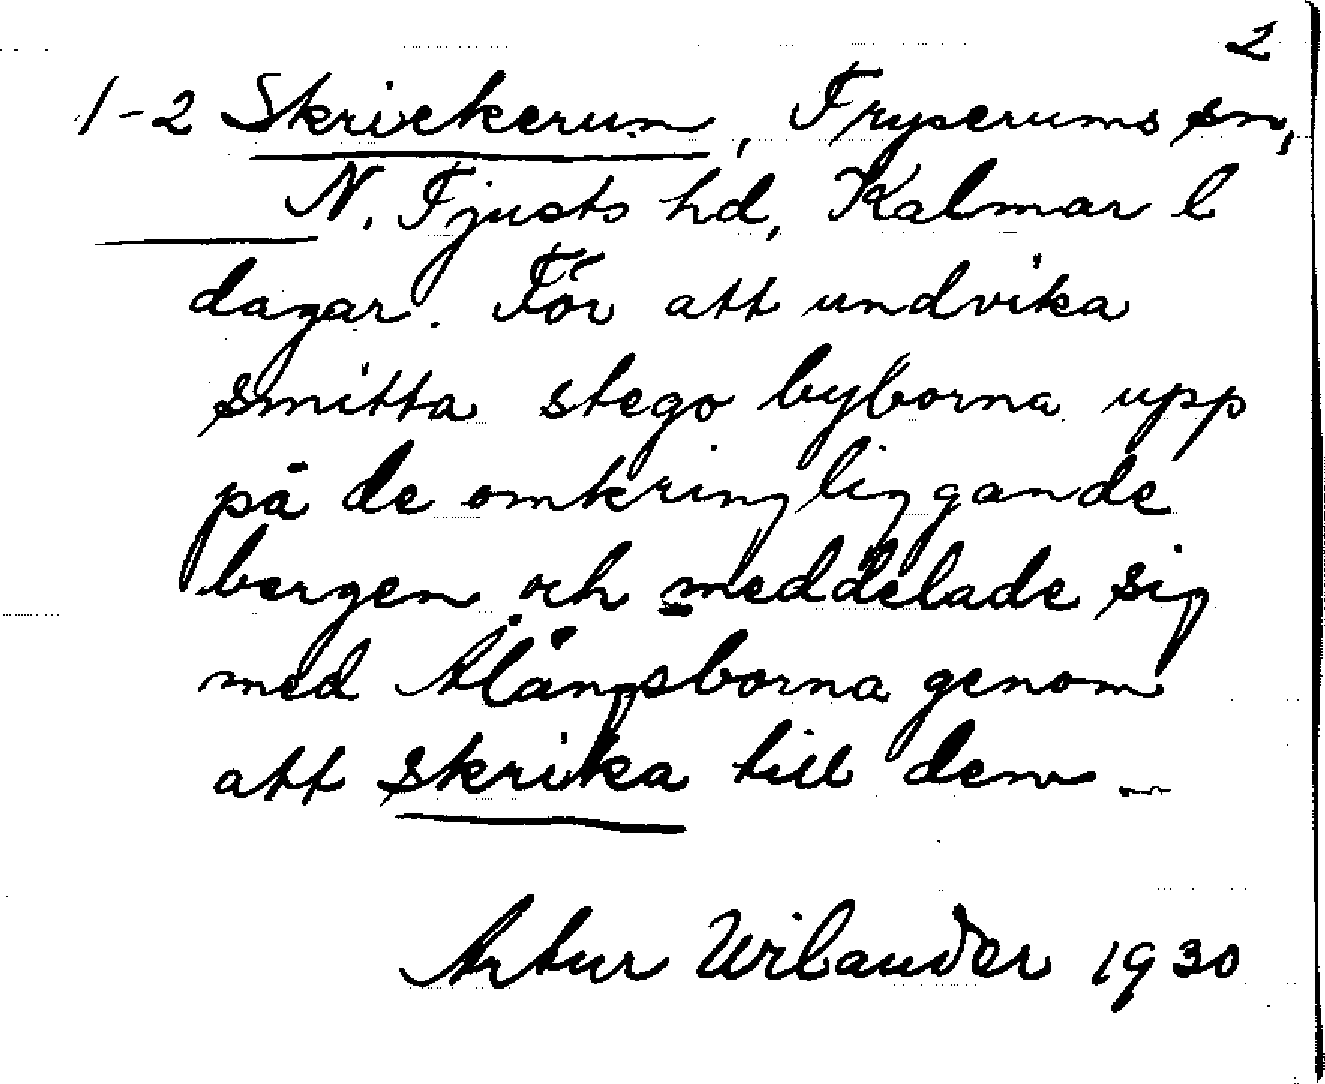 2
1-2 Skrickerum, Fryserums sn,
N. Tjusts hd, Kalmar l
dagar. För att undvika
smitta stego byborna upp
på de omkringliggande
bergen och meddelade sig
med Alängsborna genom
att skrika till dem
Artur Wilander 1930